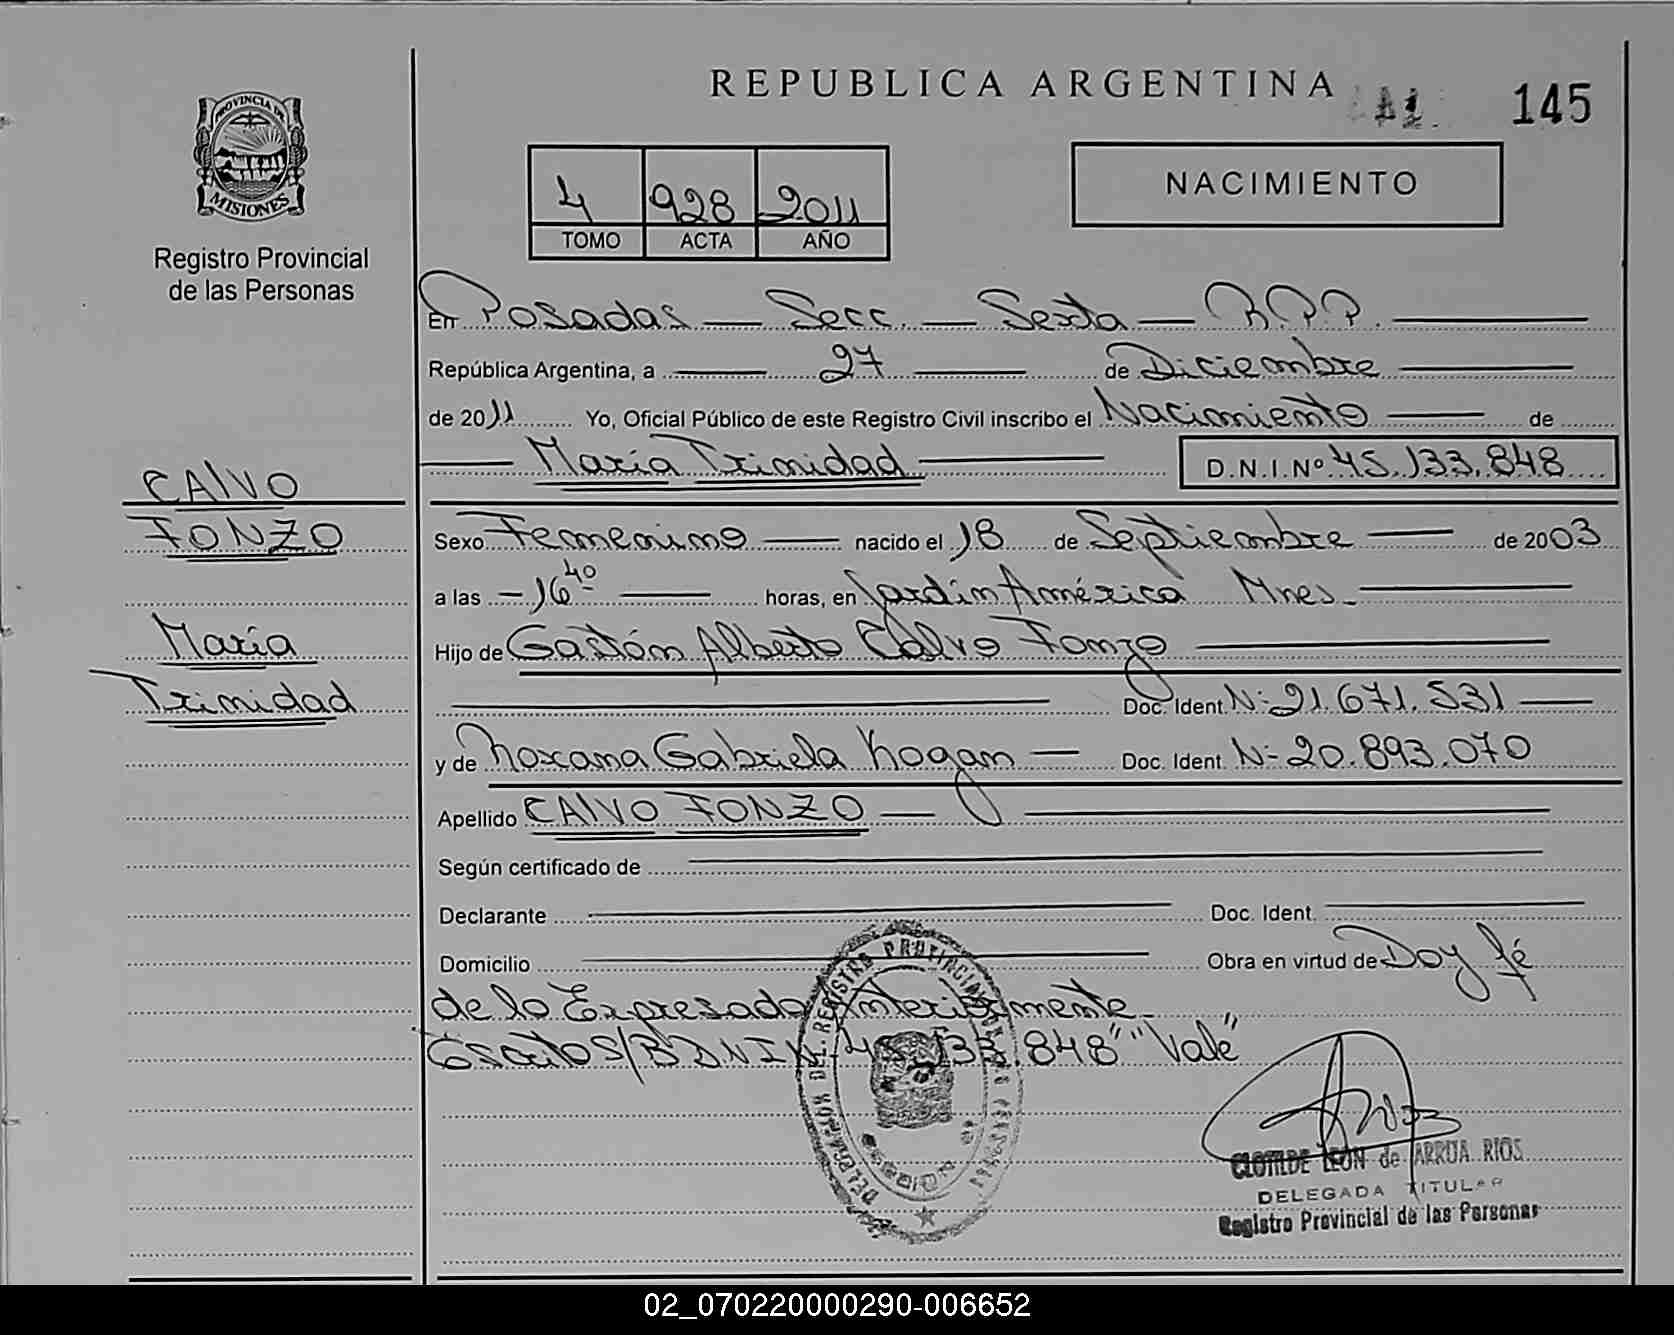 REPUBLICA ARGENTINA
145
PROVINCIA DE
MISIONES
Registro Provincial
de las Personas
4 928 2011
TOMO ACTA AÑO
NACIMIENTO
En Posadas — Secc. — Sexta — R.P.P.
República Argentina, a 27 de Diciembre
de 2011 Yo, Oficial Público de este Registro Civil inscribo el Nacimiento de
María Trinidad D.N.I.Nº 45.133.848
CALVO
FONZO
María
Trinidad
Sexo Femenino nacido el 18 de Septiembre de 2003
a las 16 40 horas, en Jardín América Mnes.
Hijo de Gastón Alberto Calvo Fonzo
Doc. Ident. Nº 21.671.531
y de Roxana Gabriela Kogan Doc. Ident. Nº 20.893.070
Apellido CALVO FONZO
Según certificado de
Declarante Doc. Ident.
Domicilio Obra en virtud de Doy fé
de lo Expresado Anteriormente
Escritos/B DNI Nº 45.133.848" "Vale"
DELEGACION DEL REGISTRO PROVINCIAL DE LAS PERSONAS
CLOTILDE LEON de ARRUA RIOS
DELEGADA TITULAR
Registro Provincial de las Personas
02_070220000290-006652